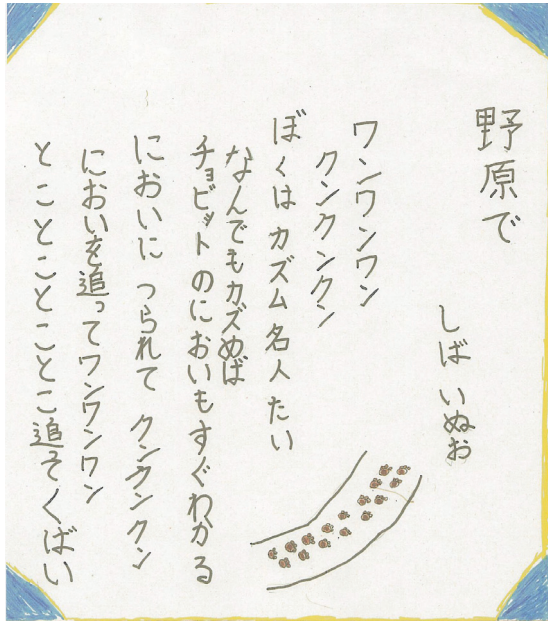 野原で
しば いぬお
ワンワンワン
クンクンクン
ぼくは カズム名人たい
なんでもカズめば
チョビットのにおいもすぐわかる
においに つられて クンクンクン
においを追ってワンワンワン
とことことことこ追そくばい